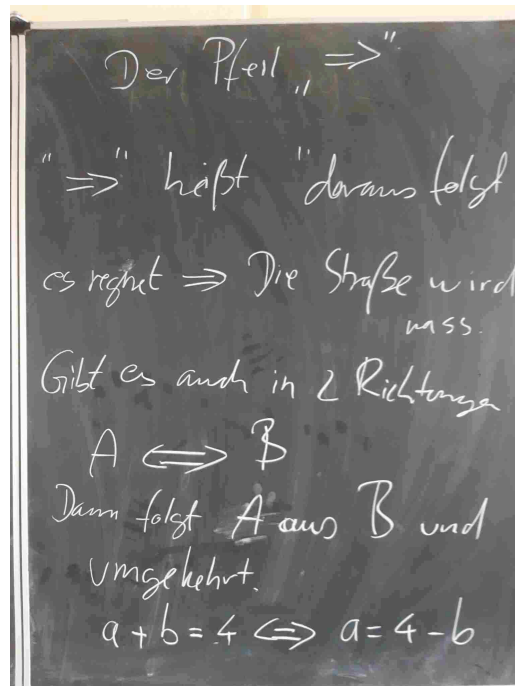 Der Pfeil „ => "
" => " heißt "daraus folgt
es regnet => Die Straße wird
nass.
Gibt es auch in 2 Richtungen
A <=> B
Dann folgt A aus B und
umgekehrt.
a + b = 4 <=> a = 4 - b